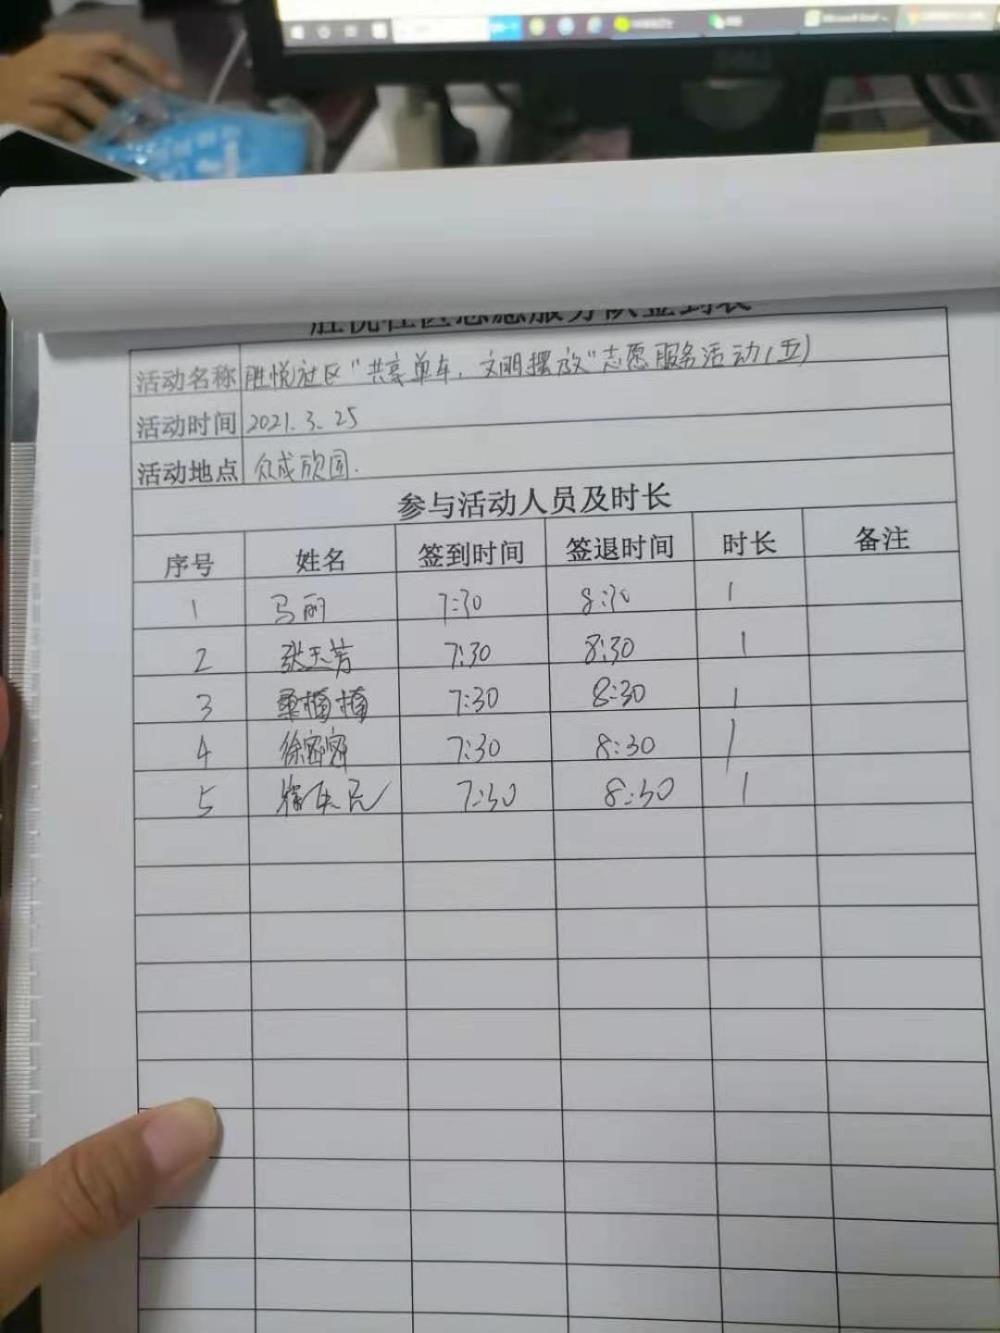 胜悦社区志愿服务队签到表
活动名称 胜悦社区“共享单车，文明摆放”志愿服务活动（五）
活动时间 2021.3.25
活动地点 众成欣园.
参与活动人员及时长
序号 姓名 签到时间 签退时间 时长 备注
1 马丽 7:30 8:30 1
2 张玉芳 7:30 8:30 1
3 桑楠楠 7:30 8:30 1
4 徐密密 7:30 8:30 1
5 7:30 8:30 1